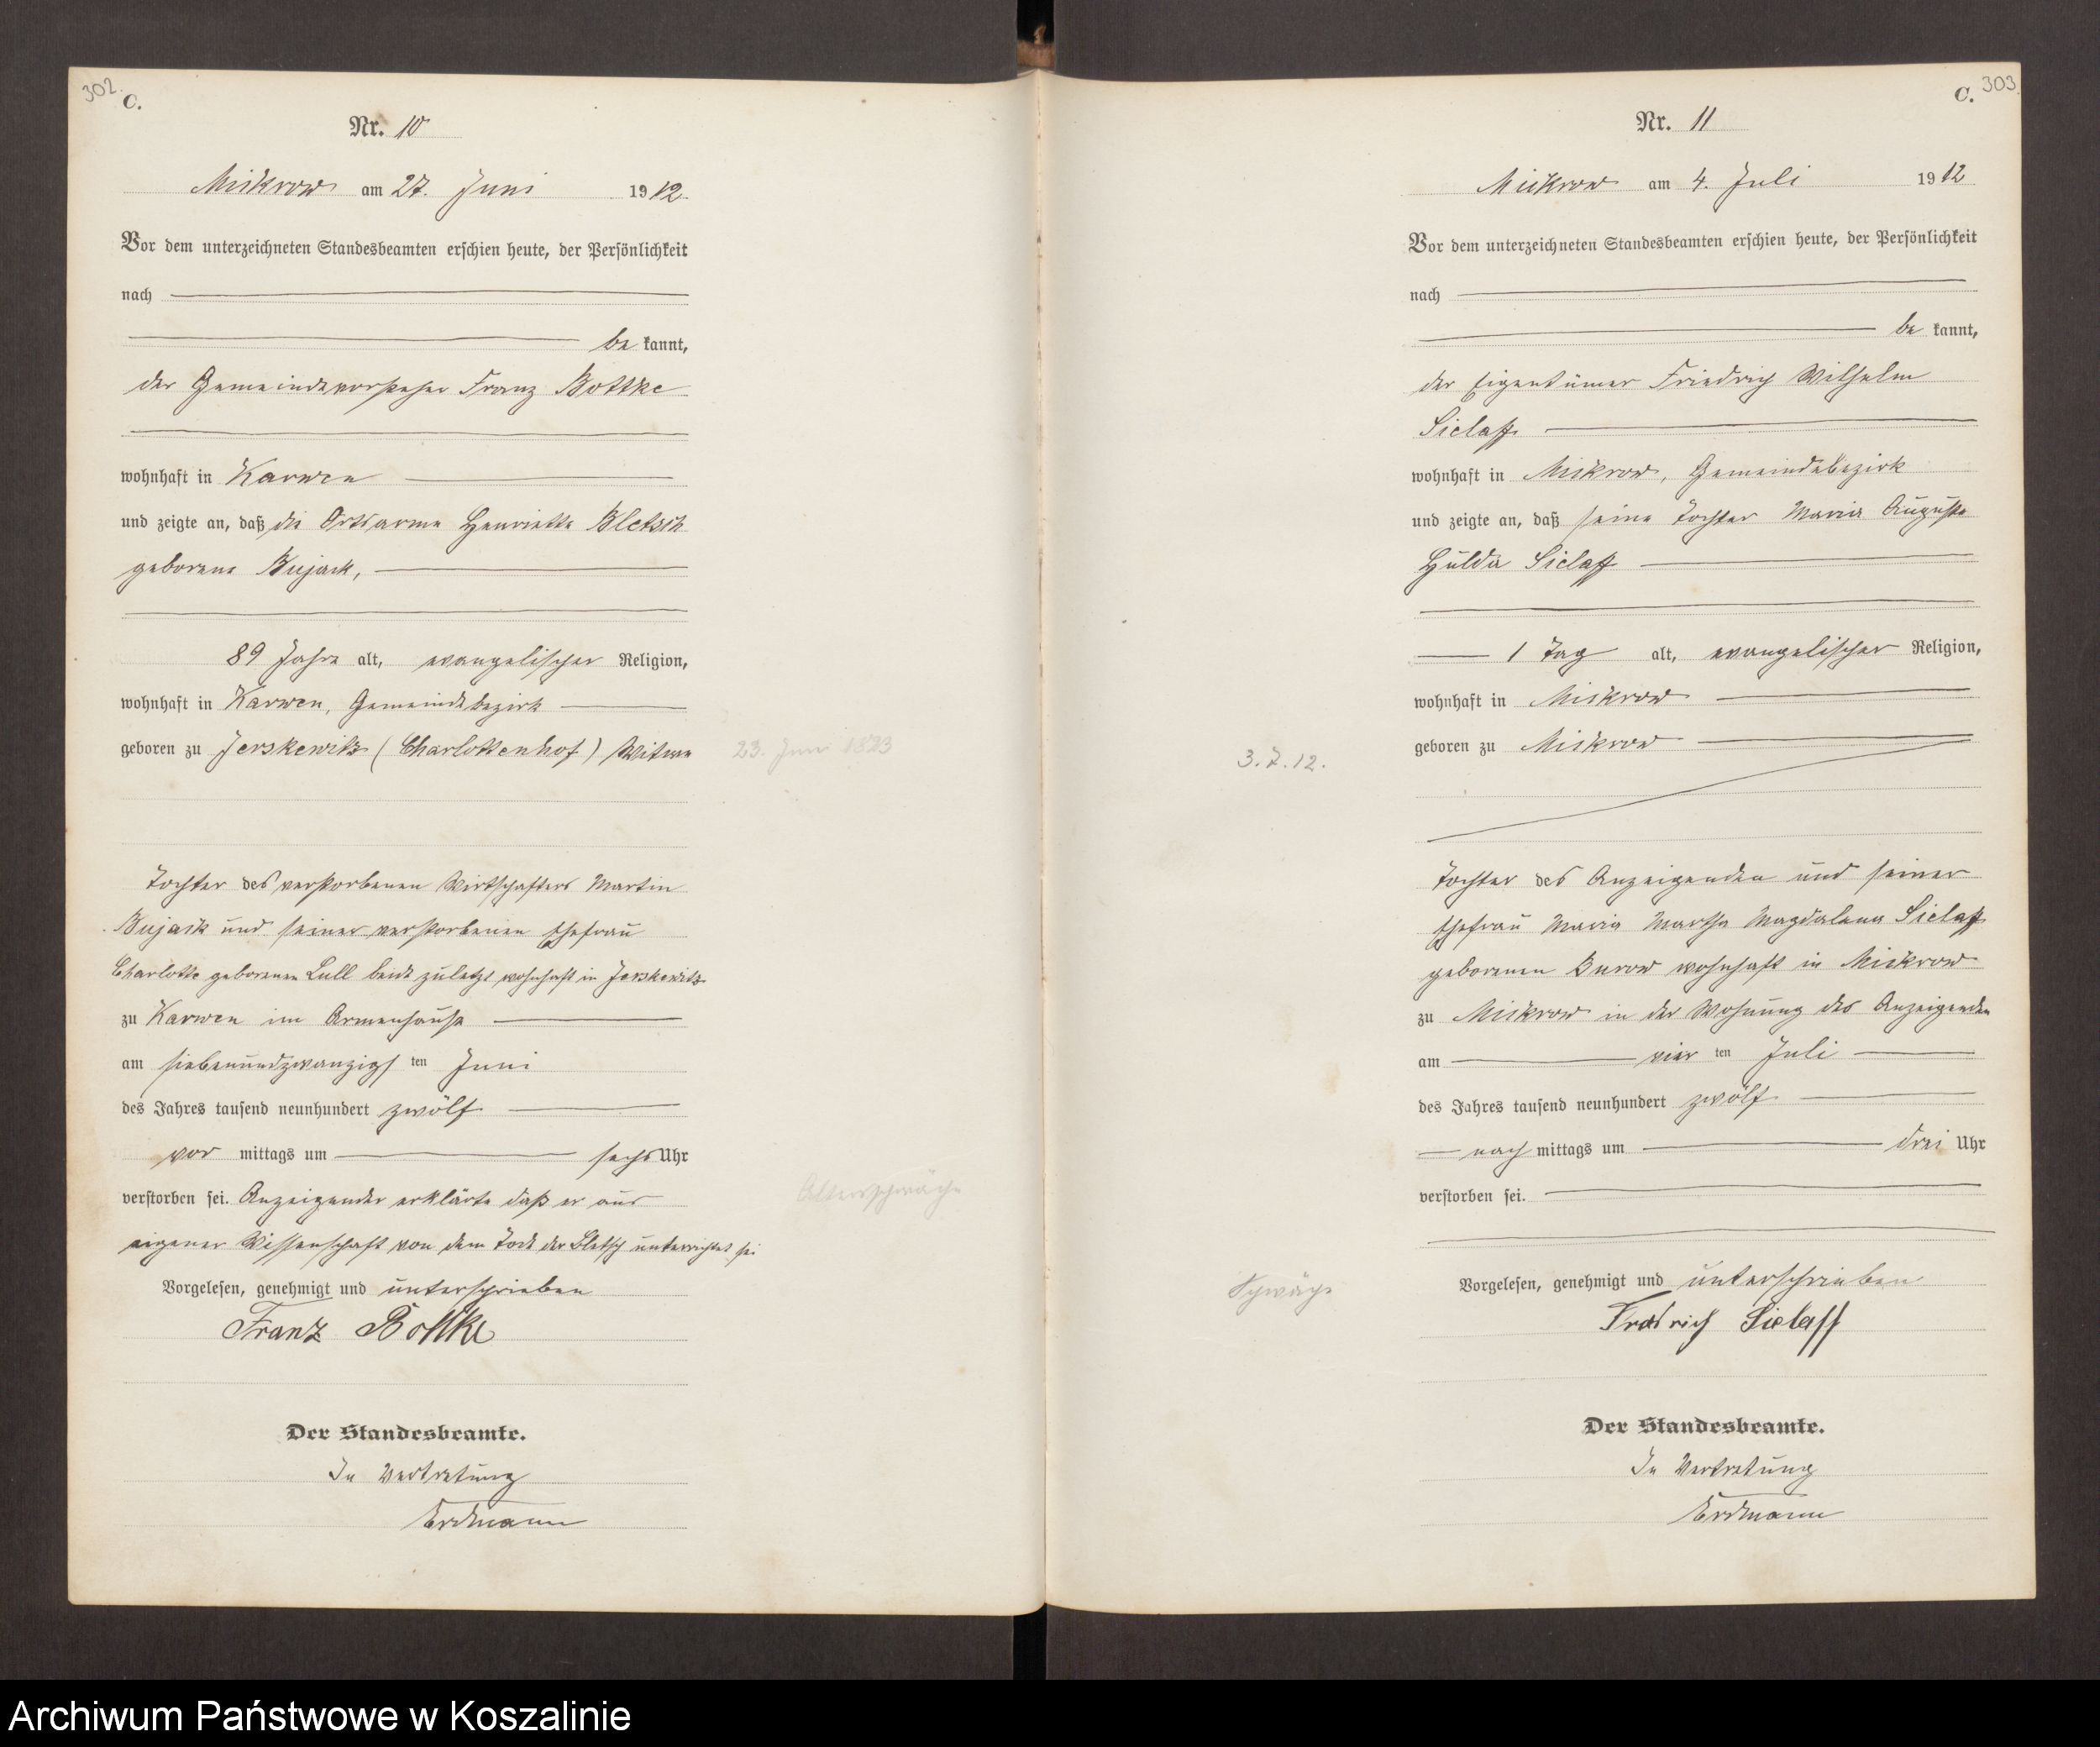 302.
C.
Nr. 10
Mickrow am 27. Juni 1912.
Vor dem unterzeichneten Standesbeamten erschien heute, der Persönlichkeit
nach
be kannt,
der Gemeindevorsteher Franz Bottke
wohnhaft in Karwen
und zeigte an, daß die Ortsarme Henriette Bletsch
geborene Bujack,
89 Jahre alt, evangelischer Religion,
wohnhaft in Karwen, Gemeindebezirk
geboren zu Jerskewitz (Charlottenhof) Witwe
23. Juni 1823
Tochter des verstorbenen Wirtschafters Martin
Bujack und seiner verstorbenen Ehefrau
Charlotte geborenen Lull beide zuletzt wohnhaft in Jerskewitz
zu Karwen im Armenhause
am siebenundzwanzigs ten Juni
des Jahres tausend neunhundert zwölf
vor mittags um sechs Uhr
verstorben sei. Anzeigender erklärte daß er aus
Altersschwäche
eigener Wissenschaft von dem Tode der Bletsch unterrichtet sei
Vorgelesen, genehmigt und unterschrieben
Franz Bottke
Der Standesbeamte.
In Vertretung
Erdmann
C. 303.
Nr. 11
Mickrow am 4. Juli 1912
Vor dem unterzeichneten Standesbeamten erschien heute, der Persönlichkeit
nach
be kannt,
der Eigentümer Friedrich Wilhelm
Sielaff
wohnhaft in Mickrow, Gemeindebezirk
und zeigte an, daß seine Tochter Maria Auguste
Hulda Sielaff
1 Tag alt, evangelischer Religion,
wohnhaft in Mickrow
geboren zu Mickrow
3.7.12.
Tochter des Anzeigenden und seiner
Ehefrau Maria Martha Magdalena Sielaff
geborenen Burow wohnhaft in Mickrow
zu Mickrow in der Wohnung des Anzeigenden
am vier ten Juli
des Jahres tausend neunhundert zwölf
nach mittags um drei Uhr
verstorben sei.
Schwäche
Vorgelesen, genehmigt und unterschrieben
Fridrich Sielaff
Der Standesbeamte.
In Vertretung
Erdmann
Archiwum Państwowe w Koszalinie